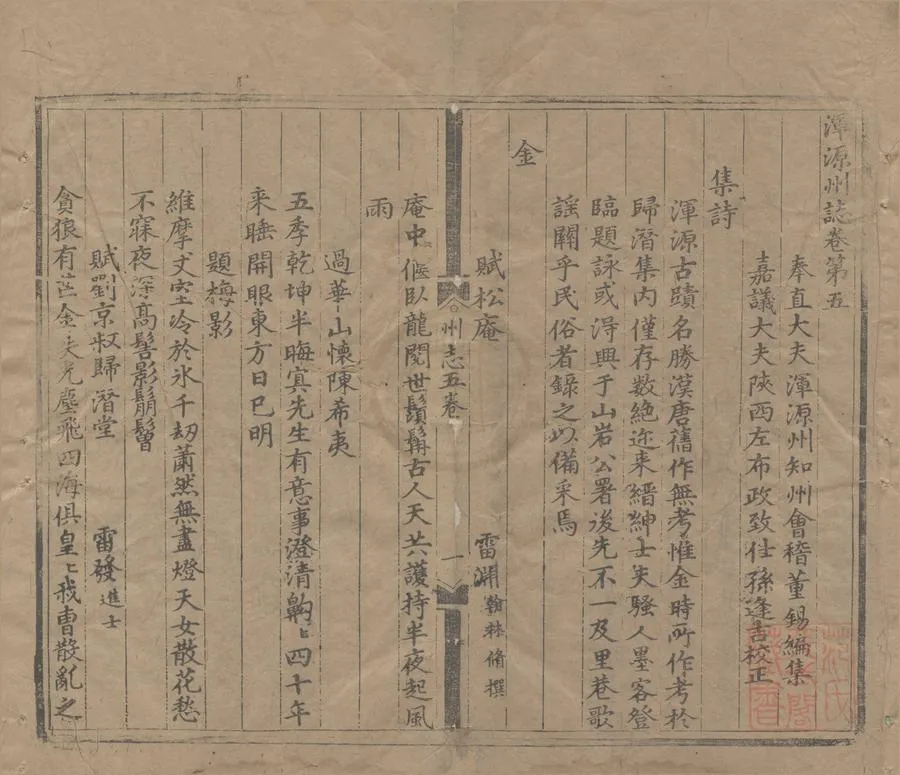 渾源州誌卷第五
奉直大夫渾源州知州會稽董錫編集
嘉議大夫陝西左布政致仕孫逢吉校正
集詩
渾源古蹟名勝漢唐舊作無考惟金時所作考扵
歸潛集內僅存数絶迩来縉紳士夫騷人墨客登
臨題詠或淂興于山岩公署後先不一及里巷歌
謡關乎民俗者錄之以備采焉
金
賦松庵 雷淵翰林脩撰
州志五卷 一
庵中偃臥龍閱世鬚髯古人天共護持半夜起風
雨
過華山懷陳希夷
五季乾坤半晦㝠先生有意事澄清齁〻四十年
来睡開眼東方日已明
題梅影
維摩丈室冷於氷千刼蕭然無盡燈天女散花愁
不寐夜深高髻影鬅鬙
賦劉京叔歸潛堂 雷發進士
貪狼有芒金失光塵飛四海俱皇〻我曹散亂之